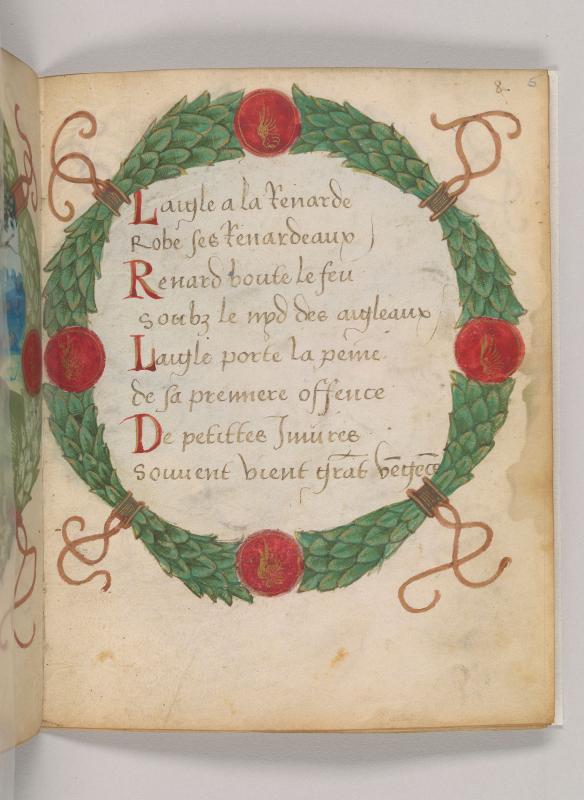 8. 5
Laigle a la Renarde
Robe ses Renardeaux
Renard boute le feu
Soubz le nyd des aigleaux
Laigle porte la peine
de sa premiere offence
De petittes Iniures
Souuent vient grāt vēgēce